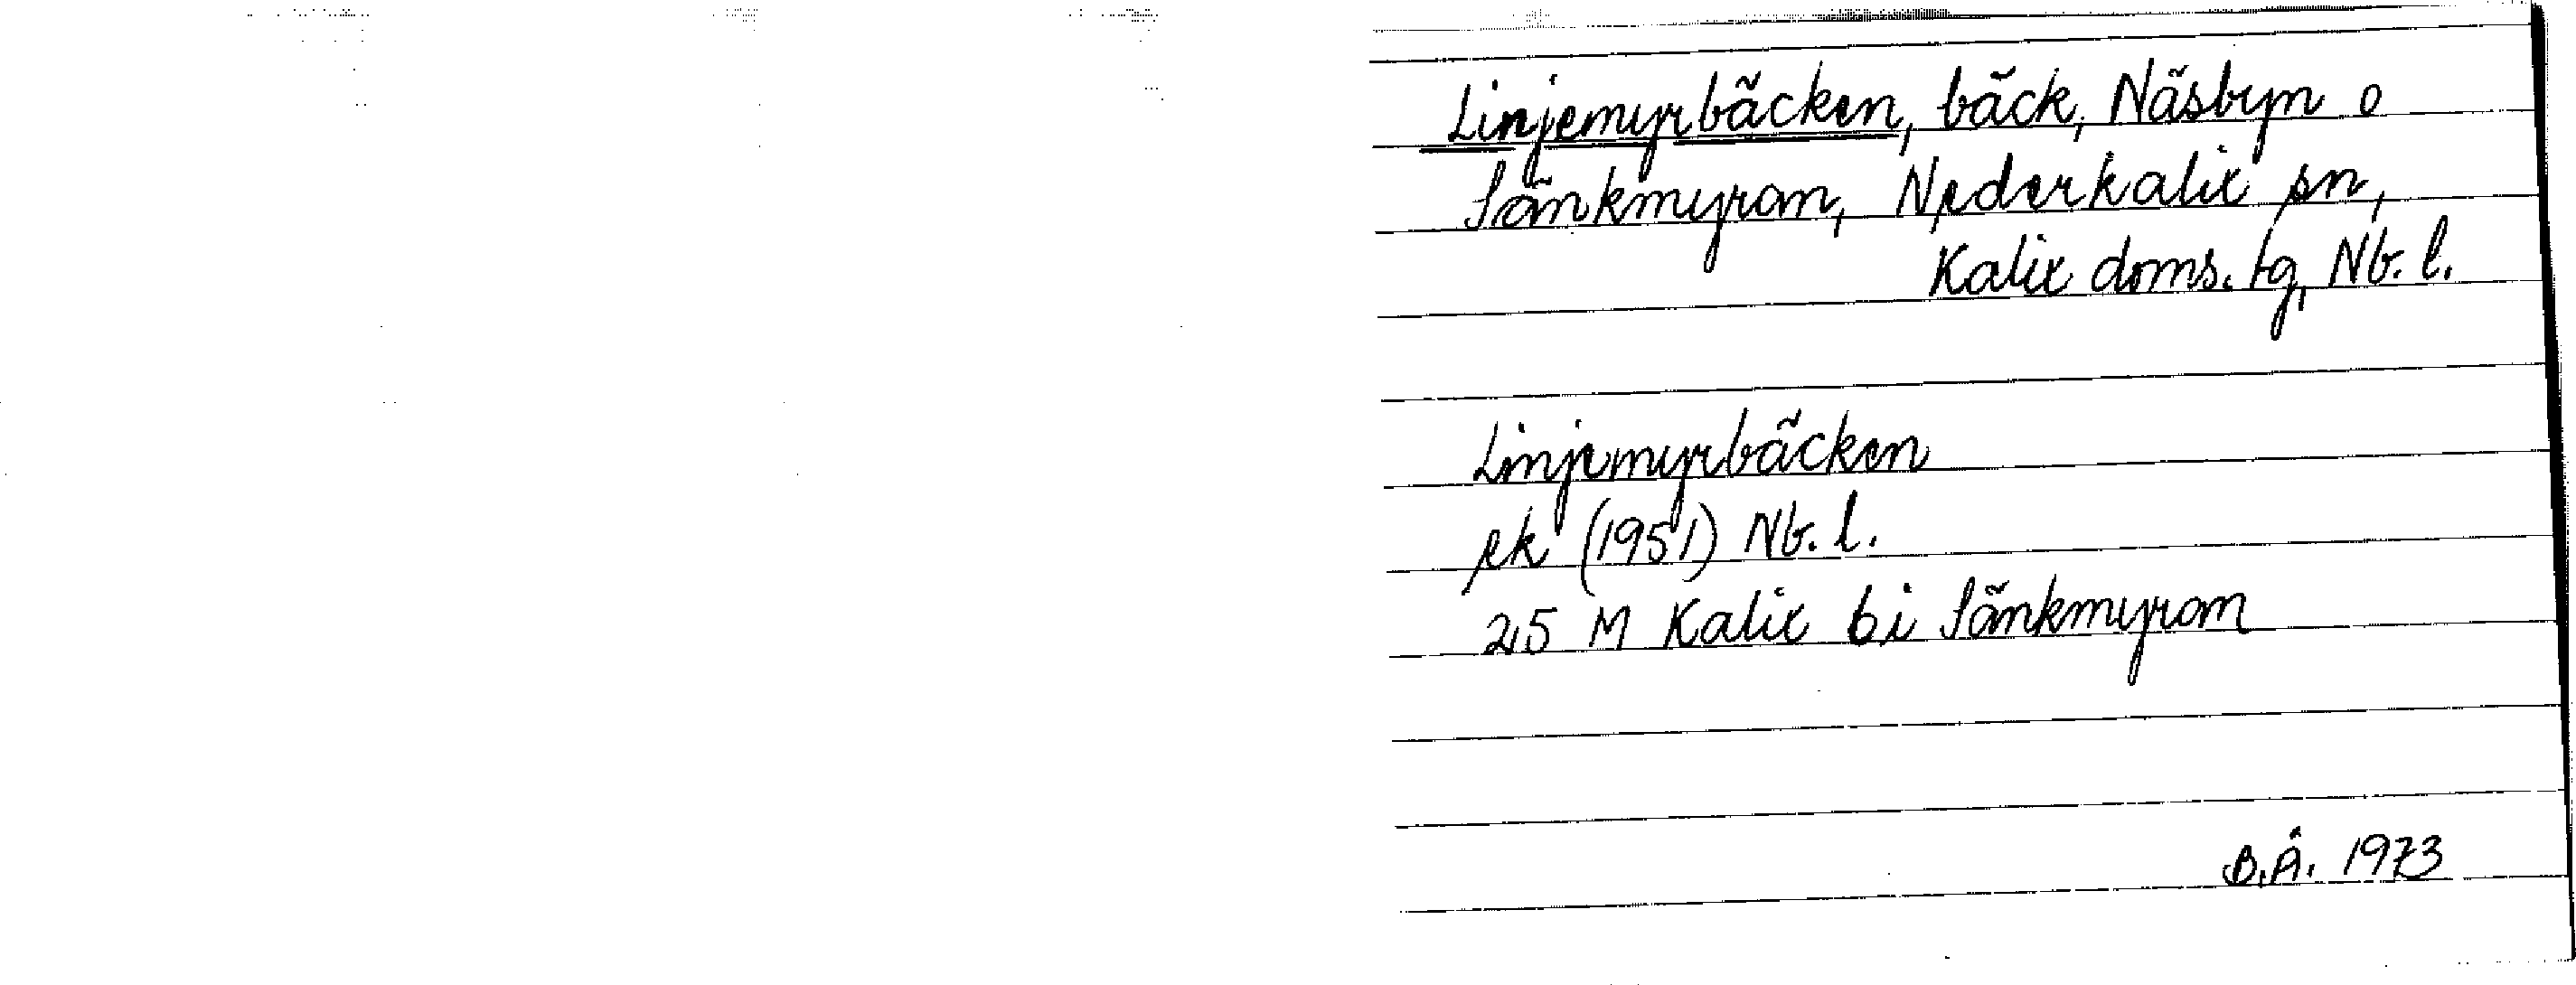 Linjemyrbäcken, bäck, Näsbyn o
Sänkmyran, Nederkalix sn,
Kalix doms. tg, Nb. l.
Linjemyrbäcken
ek (1951) Nb. l.
25 M Kalix 6i Sänkmyran
B.Å. 1973